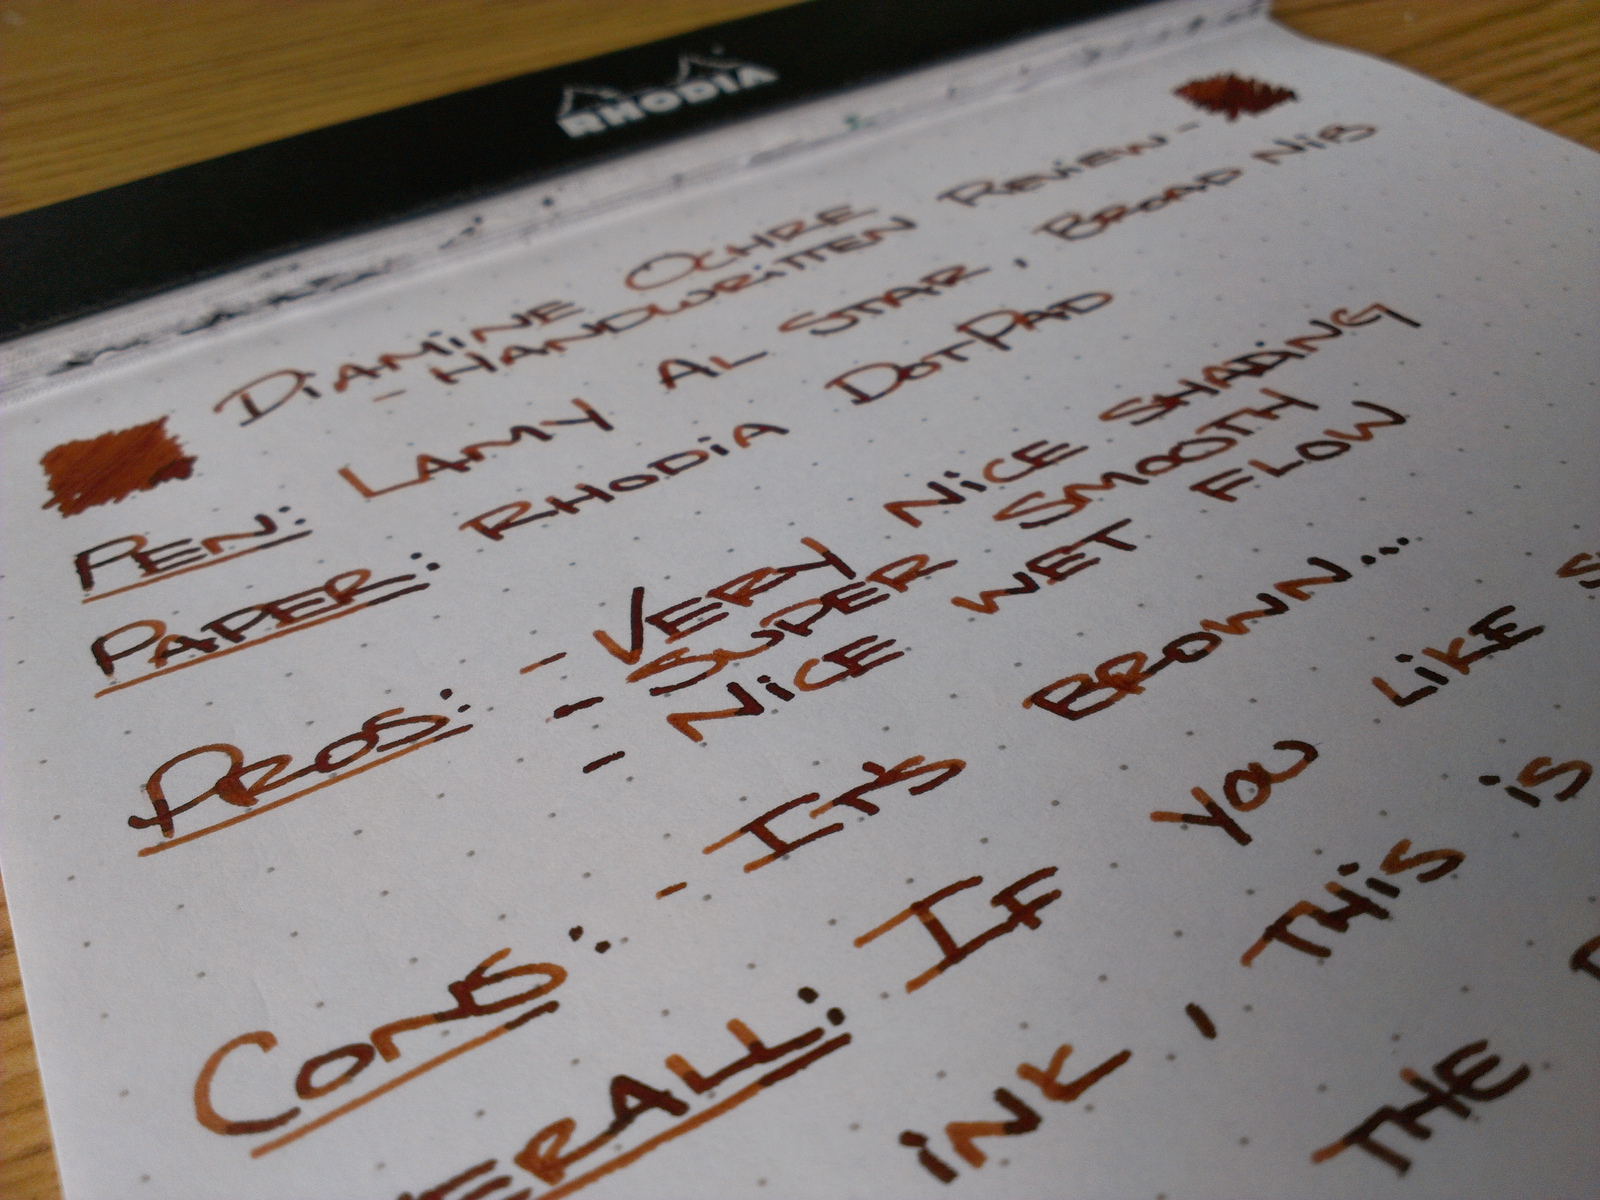 RHODIA
DiAMiNE OCHRE
- HANDWRiTTEN REViEW -
PEN: LAMY AL STAR, BROAD NiB
PAPER: RHODiA DOTPAD
PROS: - VERY NiCE SHADiNG
- SUPER SMOOTH
- NiCE WET FLOW
CONS: - IT'S BROWN...
ERALL: IF YOU LiKE
iNK, THiS iS
THE